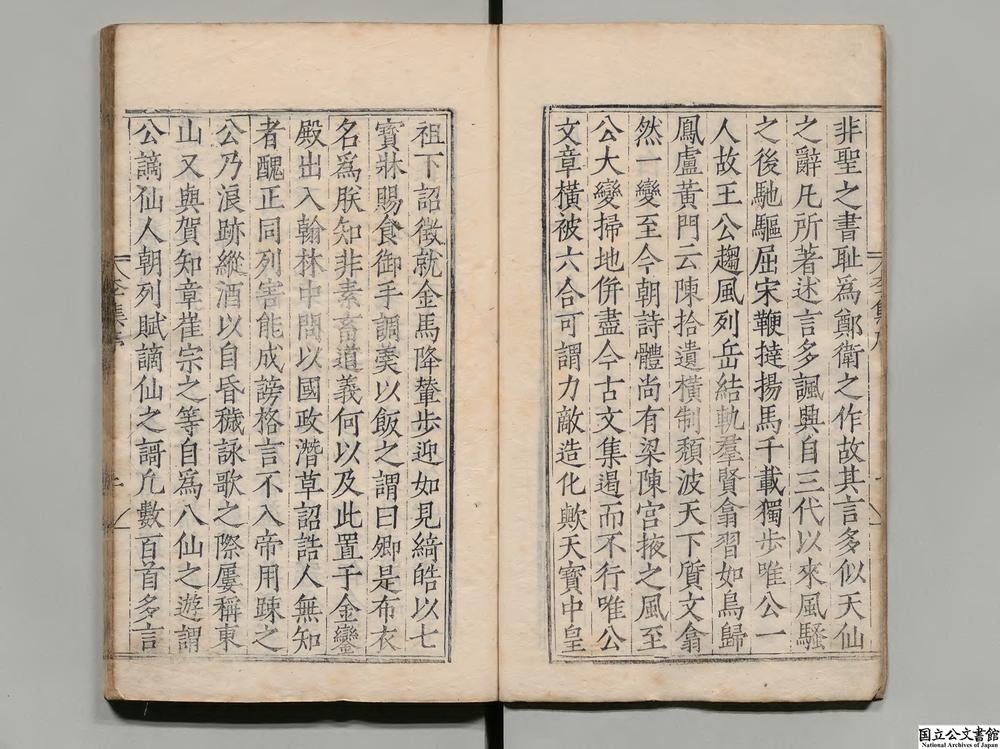 非聖之書恥爲鄭衛之作故其言多似天仙
之辭凡所著述言多諷興自三代以來風騷
之後馳驅屈宋鞭撻揚馬千載獨步唯公一
人故王公趨風列岳結軌羣賢翕習如鳥歸
鳳盧黃門云陳拾遺橫制頹波天下質文翕
然一變至今朝詩體尚有梁陳宮掖之風至
公大變掃地併盡今古文集遏而不行唯公
文章橫被六合可謂力敵造化歟天寶中皇
祖下詔徵就金馬降輦步迎如見綺皓以七
寶牀賜食御手調羹以飯之謂曰卿是布衣
名爲朕知非素畜道義何以及此置于金鑾
殿出入翰林中問以國政潛草詔誥人無知
者醜正同列害能成謗格言不入帝用踈之
公乃浪跡縱酒以自昏穢詠歌之際屢稱東
山又與賀知章崔宗之等自爲八仙之遊謂
公謫仙人朝列賦謫仙之謌凢數百首多言
国立公文書館
National Archives of Japan